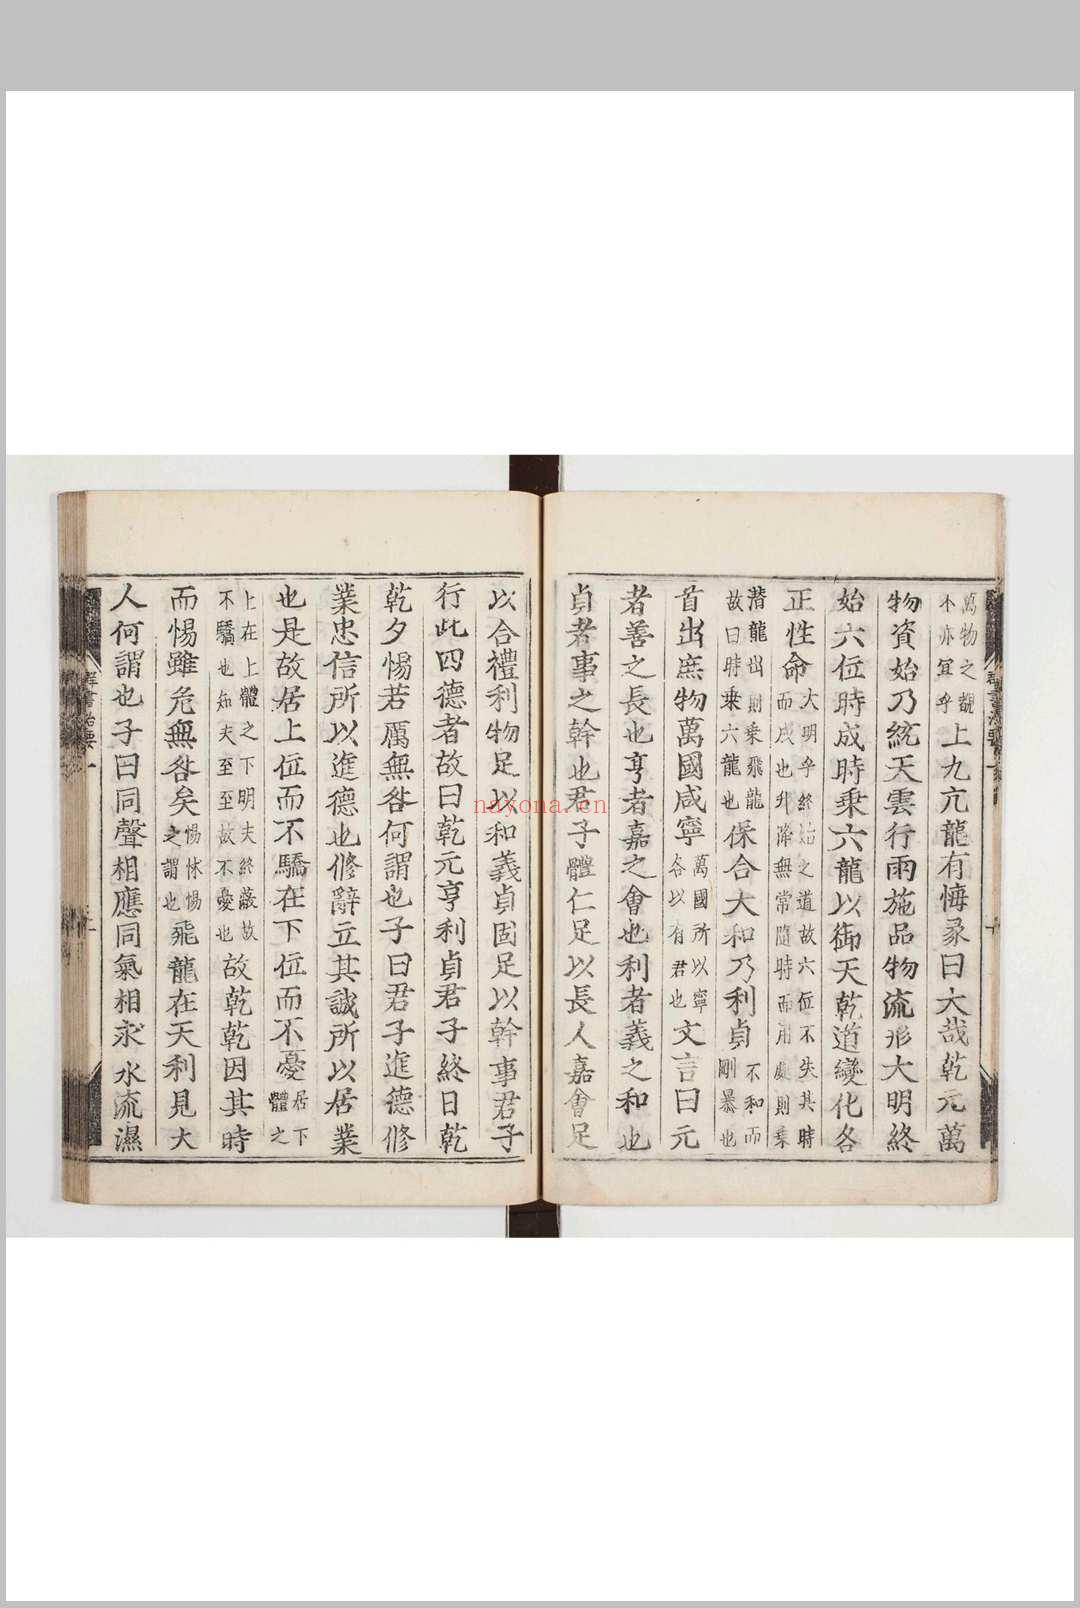 萬物之覩不亦宜乎上九亢龍有悔彖曰大哉乾元萬
物資始乃統天雲行雨施品物流形大明終
始六位時成時乘六龍以御天乾道變化各
正性命大明乎終始之道故六位不失其時而成也升降無常隨時而用處則乘
潛龍出則乘飛龍故曰時乘六龍也保合大和乃利貞不和而剛暴也
首出庶物萬國咸寧萬國所以寧各以有君也文言曰元
者善之長也亨者嘉之會也利者義之和也
貞者事之幹也君子體仁足以長人嘉會足
以合禮利物足以和義貞固足以幹事君子
行此四德者故曰乾元亨利貞君子終日乾
乾夕惕若厲無咎何謂也子曰君子進德修
業忠信所以進德也修辭立其誠所以居業
也是故居上位而不驕在下位而不憂居下體之
上在上體之下明夫終敝故不驕也知夫至至故不憂也故乾乾因其時
而惕雖危無咎矣惕怵惕之謂也飛龍在天利見大
人何謂也子曰同聲相應同氣相求水流濕
群書治要
nayona.cn